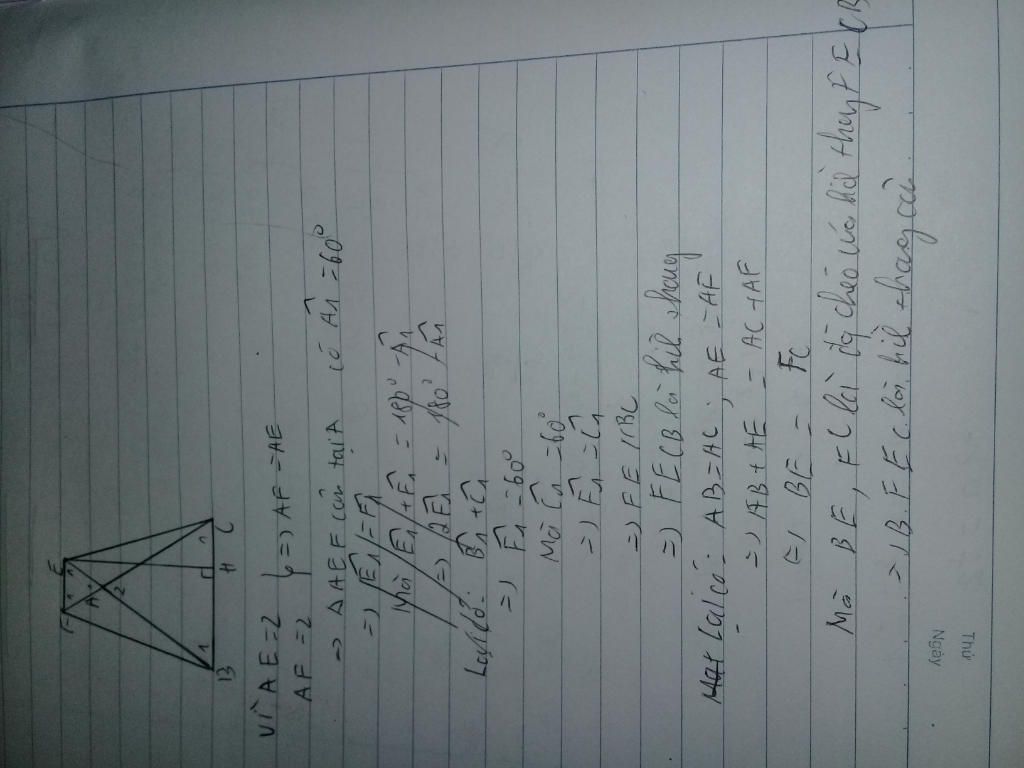 F E
1 1
A
2
1 1
B H C
Vì AE = 2
AF = 2 } => AF = AE
=> ΔAEF cân tại A có Â1 = 60°
=> Ê1 = F̂1
Mà Ê1 + F̂1 = 180° - Â1
=> 2Ê1 = 180° - Â1
B̂1 + Ĉ1
=> F̂1 = 60°
Mà Ĉ1 = 60°
=> F̂1 = Ĉ1
=> FE // BC
=> FECB là hình thang
Lại có: AB = AC; AE = AF
=> AB + AE = AC + AF
(=) BE = FC
Mà BE, FC là đg chéo của hình thang FECB
=> BFEC là hình thang cân.
Thứ
Ngày